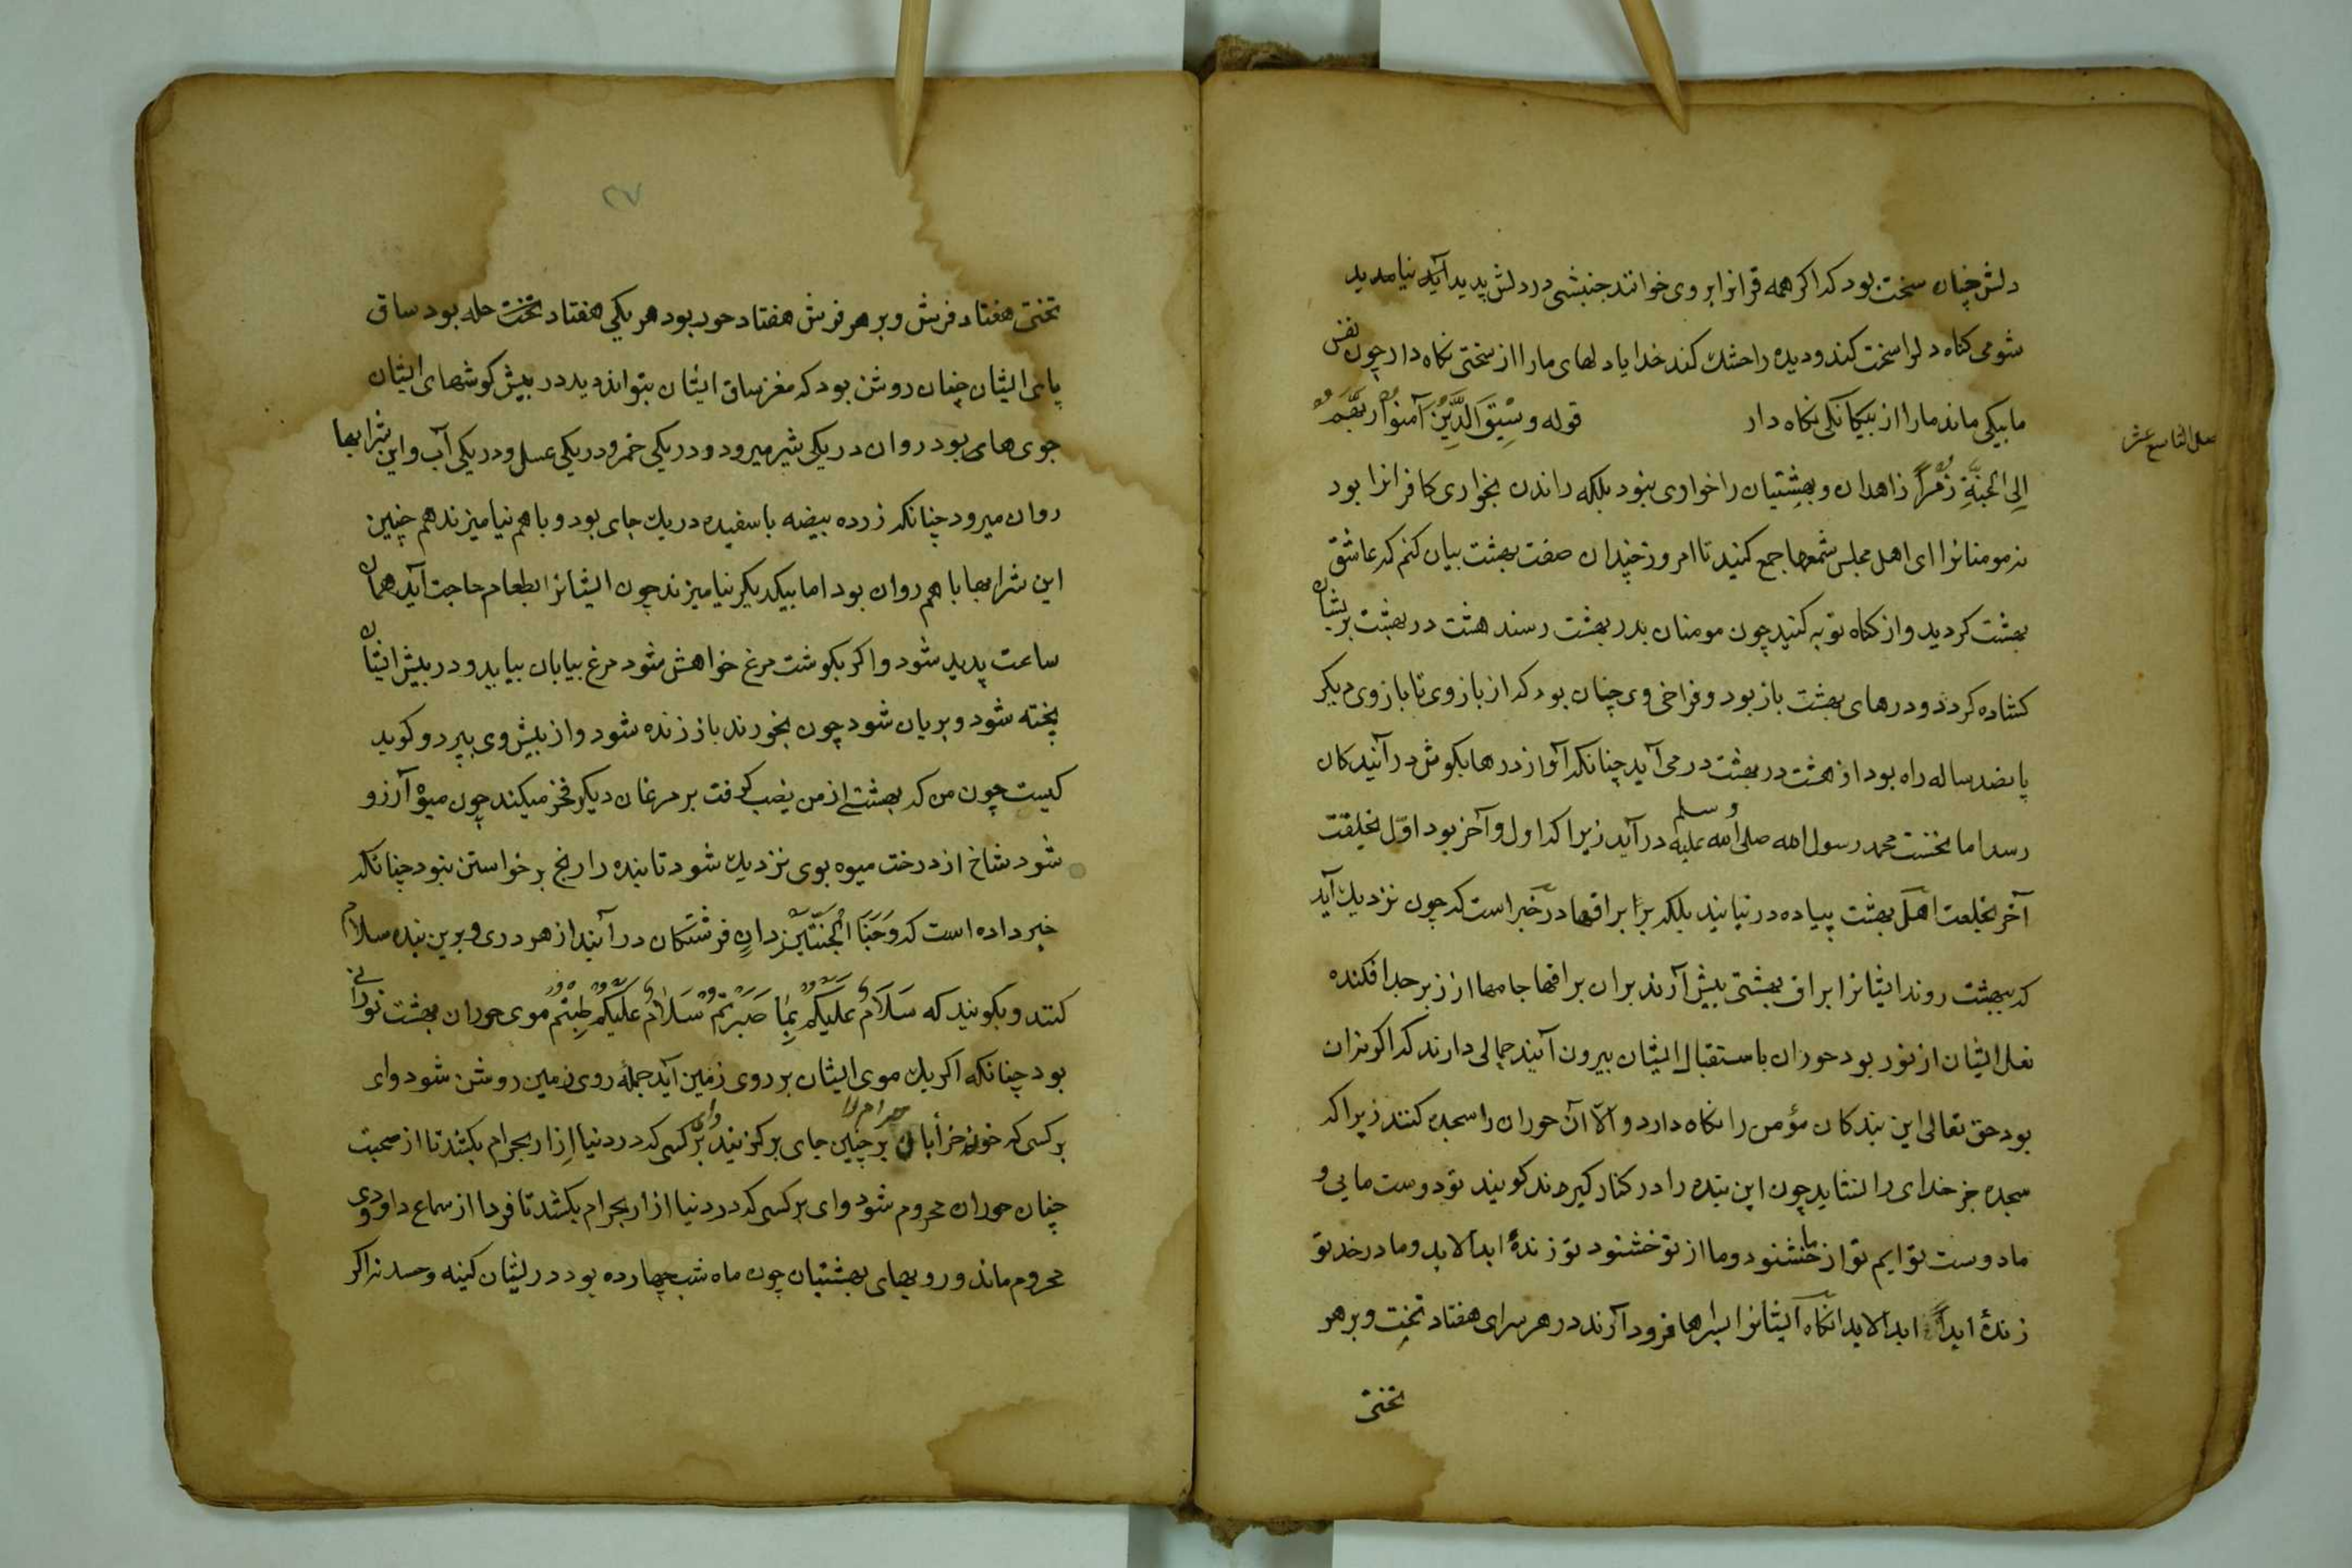 دلش چنان سخت بود که اکر همه قرانرا بروی خوانند جنبشی در دلش پدید آید نیامدید
شومی کناه دلرا سخت کند و دیده را خشك کند خدایا دلهای مارا از سختی نکاه دار چون نفس
ما بیکی ماند مارا از بیکانکی نکاه دار قوله وَسِيْقَ الَّذِيْنَ آمنوا رَبَّهُمْ
فصل التاسع عشر
اِلى الجَنَّةِ زُمَراً زاهدان و بهشتیان را خواری نبود بلکه راندن بخواری کافرانرا بود
نه مومنانرا ای اهل مجلس شمعها جمع کنید تا امروز چندان صفت بهشت بیان کنم که عاشق
بهشت کردید و از کناه توبه کنید چون مومنان بدر بهشت رسند هشت در بهشت بریشان
کشاده کردد و درهای بهشت باز بود و فراخی وی چنان بود که از بازوی تا بازوی دیکر
پانصد ساله راه بود از هشت در بهشت درمی آید چنانکه آواز درها بکوش در آیندکان
رسد اما نخست محمد رسول الله صلی الله علیه وسلم در آید زیرا که اول و آخر بود اوّل بخلیقت
آخر بخلعت اهل بهشت پیاده در نیایند بلکه بر براقها در خبر است که چون نزدیك آید
که ببهشت روند ایشانرا براق بهشتی پیش آرند بران براقها جامها از زبرجد افکنده
نعل ایشان از نور بود حوران باستقبال ایشان بیرون آیند جمالی دارند که اکر نه ان
بود حق تعالی این بندکان مؤمن را نکاه دارد و الّا آن حوران را سجده کنند زیرا که
سجده جز خدای را نشاید چون این بنده را در کنار کیرند کویند تو دوست مایی و
ما دوست تو ایم تو از ما خشنود و ما از تو خشنود تو زندهٔ ابد الابد و ما در خد تو
زندهٔ ابداً ابد الابد انکاه ایشانرا بسراها فرود آرند در هر سرای هفتاد تخت و بر هر
تختی
۲۷
تختی هفتاد فرش و بر هر فرش هفتاد حور بود هر یکی هفتاد تخت حله بود ساق
پای ایشان چنان روشن بود که مغز ساق ایشان بتواند دید در پیش کوشهای ایشان
جوی های بود روان در یکی شیر میرود و در یکی خمر و در یکی عسل و در یکی آب و این شرابها
روان میرود چنانکه زرده بیضه با سفیده در یك جای بود و با هم نیامیزند هم چنین
این شرابها با هم روان بود اما بیکدیکر نیامیزند چون ایشانرا بطعام حاجت آید همان
ساعت پدید شود و اکر بکوشت مرغ خواهش شود مرغ بیابان بیاید و در پیش ایشان
پخته شود و بریان شود چون بخورند باز زنده شود و از پیش وی بپرد و کوید
کیست چون من که بهشتی از من نصیب کرفت بر مرغان دیکر فخر میکند چون میوهٔ آرزو
شود شاخ از درخت میوه بوی نزدیك شود تا بنده را رنج برخواستن نبود چنانکه
خبر داده است که وَجَنَا الْجَنَّتَيْنِ دانٍ فرشتکان در آیند از هر دری و برین بنده سلام
کنند و بکویند که سَلَامٌ عَلَيْكُمْ بِمَا صَبَرْتُمْ سَلَامٌ عَلَيْكُمْ طِبْتُمْ موی حوران بهشت نورانی
بود چنانکه اکر یك موی ایشان بر روی زمین آید جملهٔ روی زمین روشن شود وای
بر کسی که خون خرابان حرام را بر چنین جای برکزیند وای بر کسی که در دنیا اِزار بحرام بکشد تا از صحبت
چنان حوران محروم شود وای بر کسی که در دنیا ازار بحرام بکشد تا فردا از سماع داودی
محروم ماند و رویهای بهشتیان چون ماه شب چهارده بود در ایشان کینه و حسد نه اکر